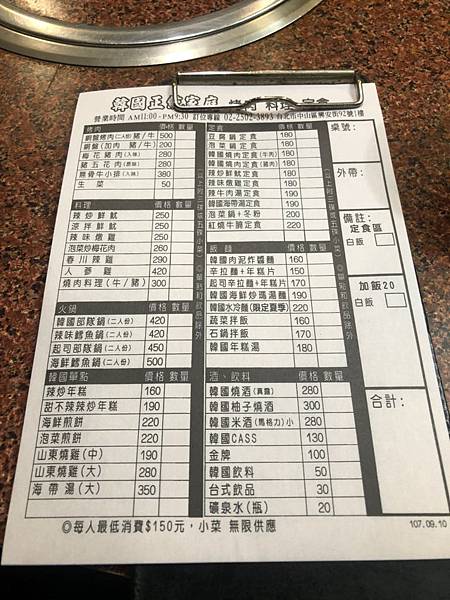 韓國正 烤肉 料理 定食
營業時間 AM11:00-PM9:30 訂位專線 02-2502-3893 台北市中山區興安街92號1樓
烤肉 價格 數量
銅盤烤肉(二人份)豬/牛 500
銅盤(加肉 豬/牛) 200
梅花豬肉(人蔘) 280
豬五花肉(原味) 280
肩骨牛小排(人蔘) 380
生菜 50
料理 價格 數量
辣炒鮮魷 250
涼拌鮮魷 250
辣味燉雞 250
泡菜炒梅花肉 260
春川辣雞 290
人蔘雞 420
燒肉料理(牛/豬) 300
火鍋 價格 數量
韓國部隊鍋(二人份) 420
辣味鱈魚鍋(二人份) 450
起司部隊鍋(二人份) 450
海鮮鱈魚鍋(二人份) 500
韓國單點 價格 數量
辣炒年糕 160
甜不辣辣炒年糕 190
海鮮煎餅 220
泡菜煎餅 220
山東燒雞(中) 190
山東燒雞(大) 280
海帶湯(大) 350
定食 價格 數量
豆腐鍋定食 180
泡菜鍋定食 180
韓國燒肉定食(牛肉) 180
韓國燒肉定食(豬肉) 180
辣炒鮮魷定食 180
辣味燉雞定食 180
辣牛肉湯定食 190
韓國海帶湯定食 190
泡菜鍋+冬粉 200
紅燒牛腩定食 220
飯麵 價格 數量
韓國肉泥炸醬麵 160
辛拉麵+年糕片 150
起司辛拉麵+年糕片 170
韓國海鮮炒瑪湯麵 190
韓國水冷麵(限定夏季) 220
蔬菜拌飯 160
石鍋拌飯 170
韓國年糕湯 180
酒、飲料 價格 數量
韓國燒酒(真露) 280
韓國柚子燒酒 300
韓國米酒(馬格力)小 280
韓國CASS 130
金牌 100
韓國飲料 50
台式飲品 30
礦泉水(瓶) 20
桌號:
外帶:
備註:
定食區
白飯
加飯20
白飯
合計:
◎每人最低消費$150元,小菜 無限供應
107.09.10